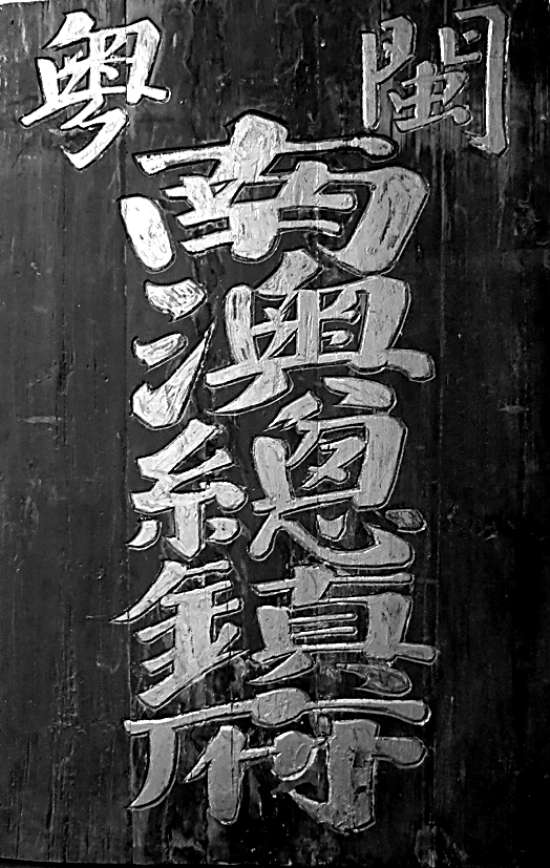 閩粤
南澳總鎮府